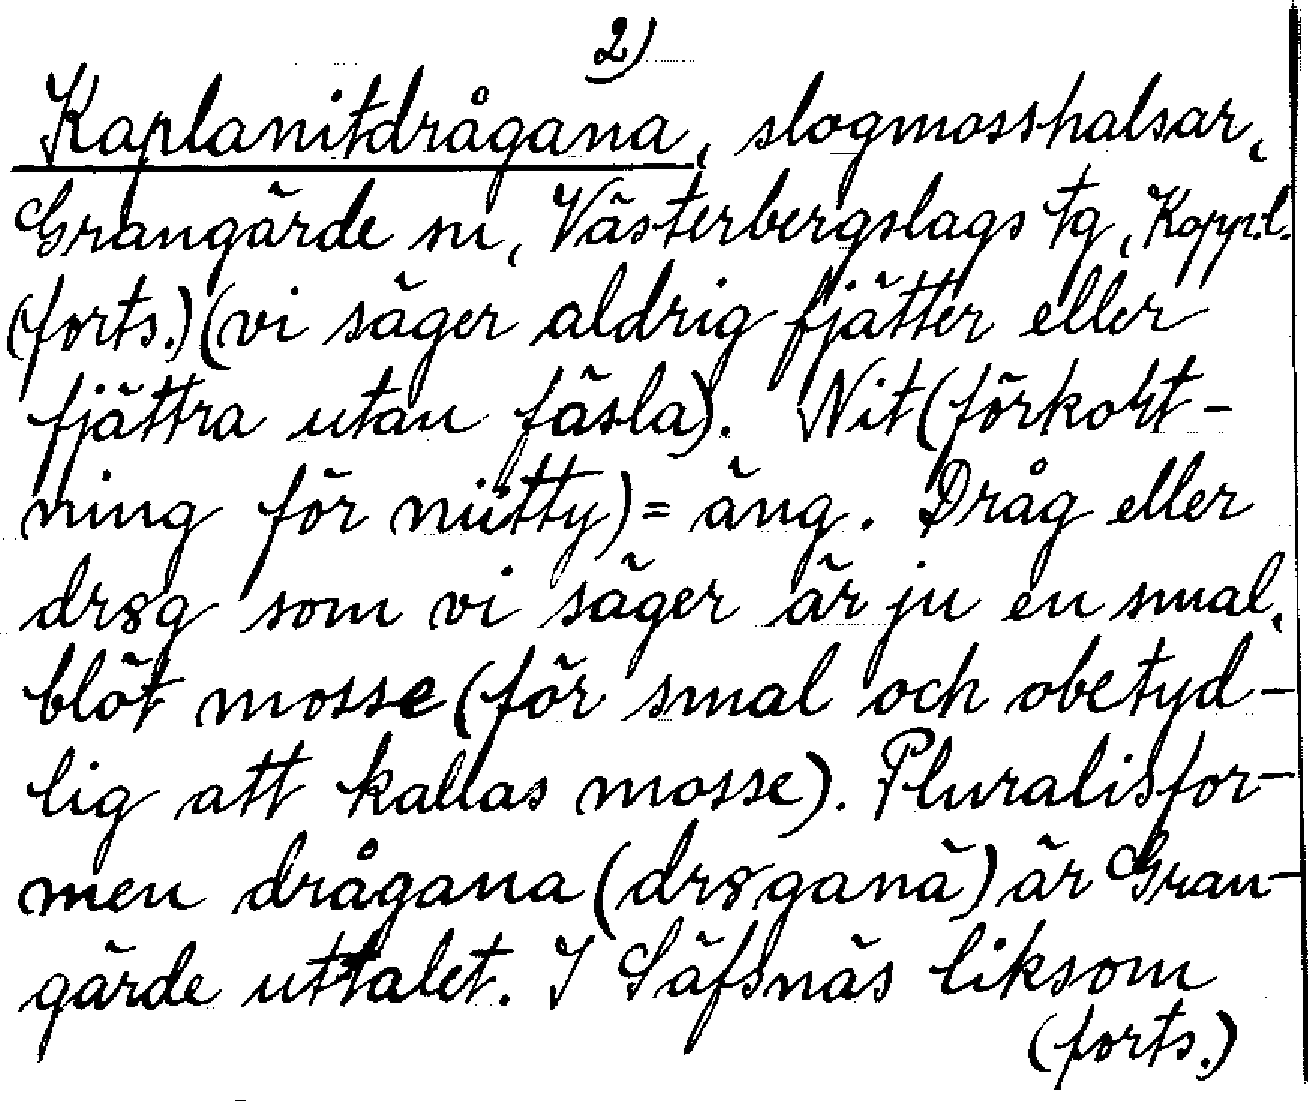 2)
Kaplanitdrågana, slogmosshalsar,
Grangärde sn, Västerbergslags tg, Koppl.
(forts.) (vi säger aldrig fjätter eller
fjättra utan fäsla). Nit (förkort-
ning för niitty) = äng. Dråg eller
dr8g som vi säger är ju en smal,
blöt mosse (för smal och obetyd-
lig att kallas mosse). Pluralisfor-
men drågana (dr8ganä) är Gran-
gärde uttalet. I Säfsnäs liksom
(forts.)